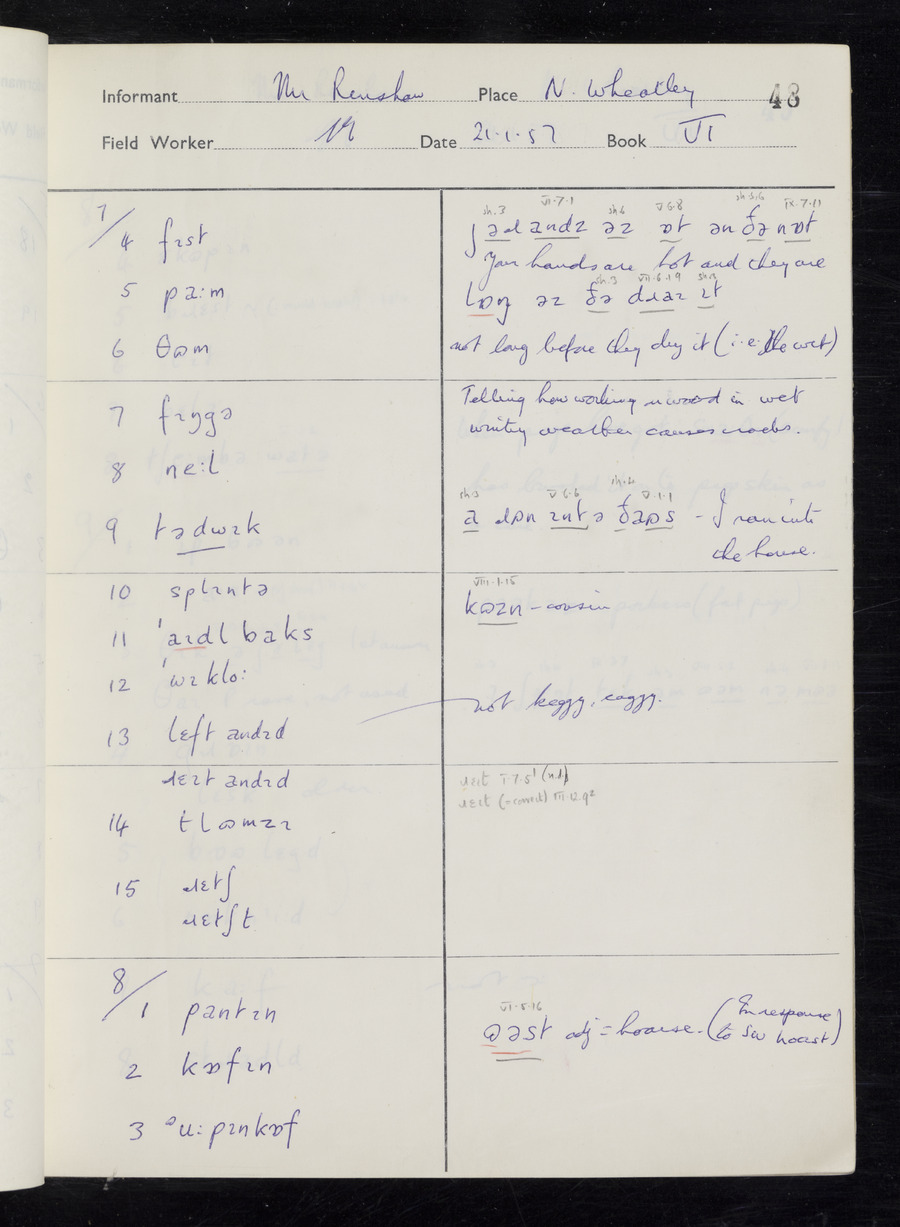 Informant Mr Renshaw Place N. Wheatley 48
Field Worker Date 21.1.57 Book VI
7/4 fɪst
5 pa:m
6 θɷm
7 fɪŋgə
8 ne:l
9 tədwɪk
10 splɪntə
11 'aɪdl baks
12 'wɪklo:
13 left andɪd
ɹɛɪt andɪd
14 tlɷmzɪ
15 ɹɛtʃ
ɹɛtʃt
8/1 pantɪn
2 kɒfɪn
3 ᵊu:pɪnkɒf
sh.3 VI.7.1 sh.6 V.6.8 sh.5,6 IX.7.11
jəɹ andz əz ɒt ən ðə nɒt
Your hands are hot and they are
sh.3 VII.6.19 sh.3
lɒŋ əz ðə dɹaɪ ɪt
not long before they dry it (i.e. the wet)
Telling how working wood in wet
wintry weather causes cracks.
sh.3 V.6.6 V.1.1
a ɹɒn ɪntə ðaɒs - I ran into
the house.
VIII.1.15
kɷzn - cousin
not keggy, caggy.
ɹɛɪt I.7.5¹ (n.d.)
ɹɛɪt (=correct) III.12.9²
VI.5.16
ɷəst adj = hoarse. (In response
to SW hoast)